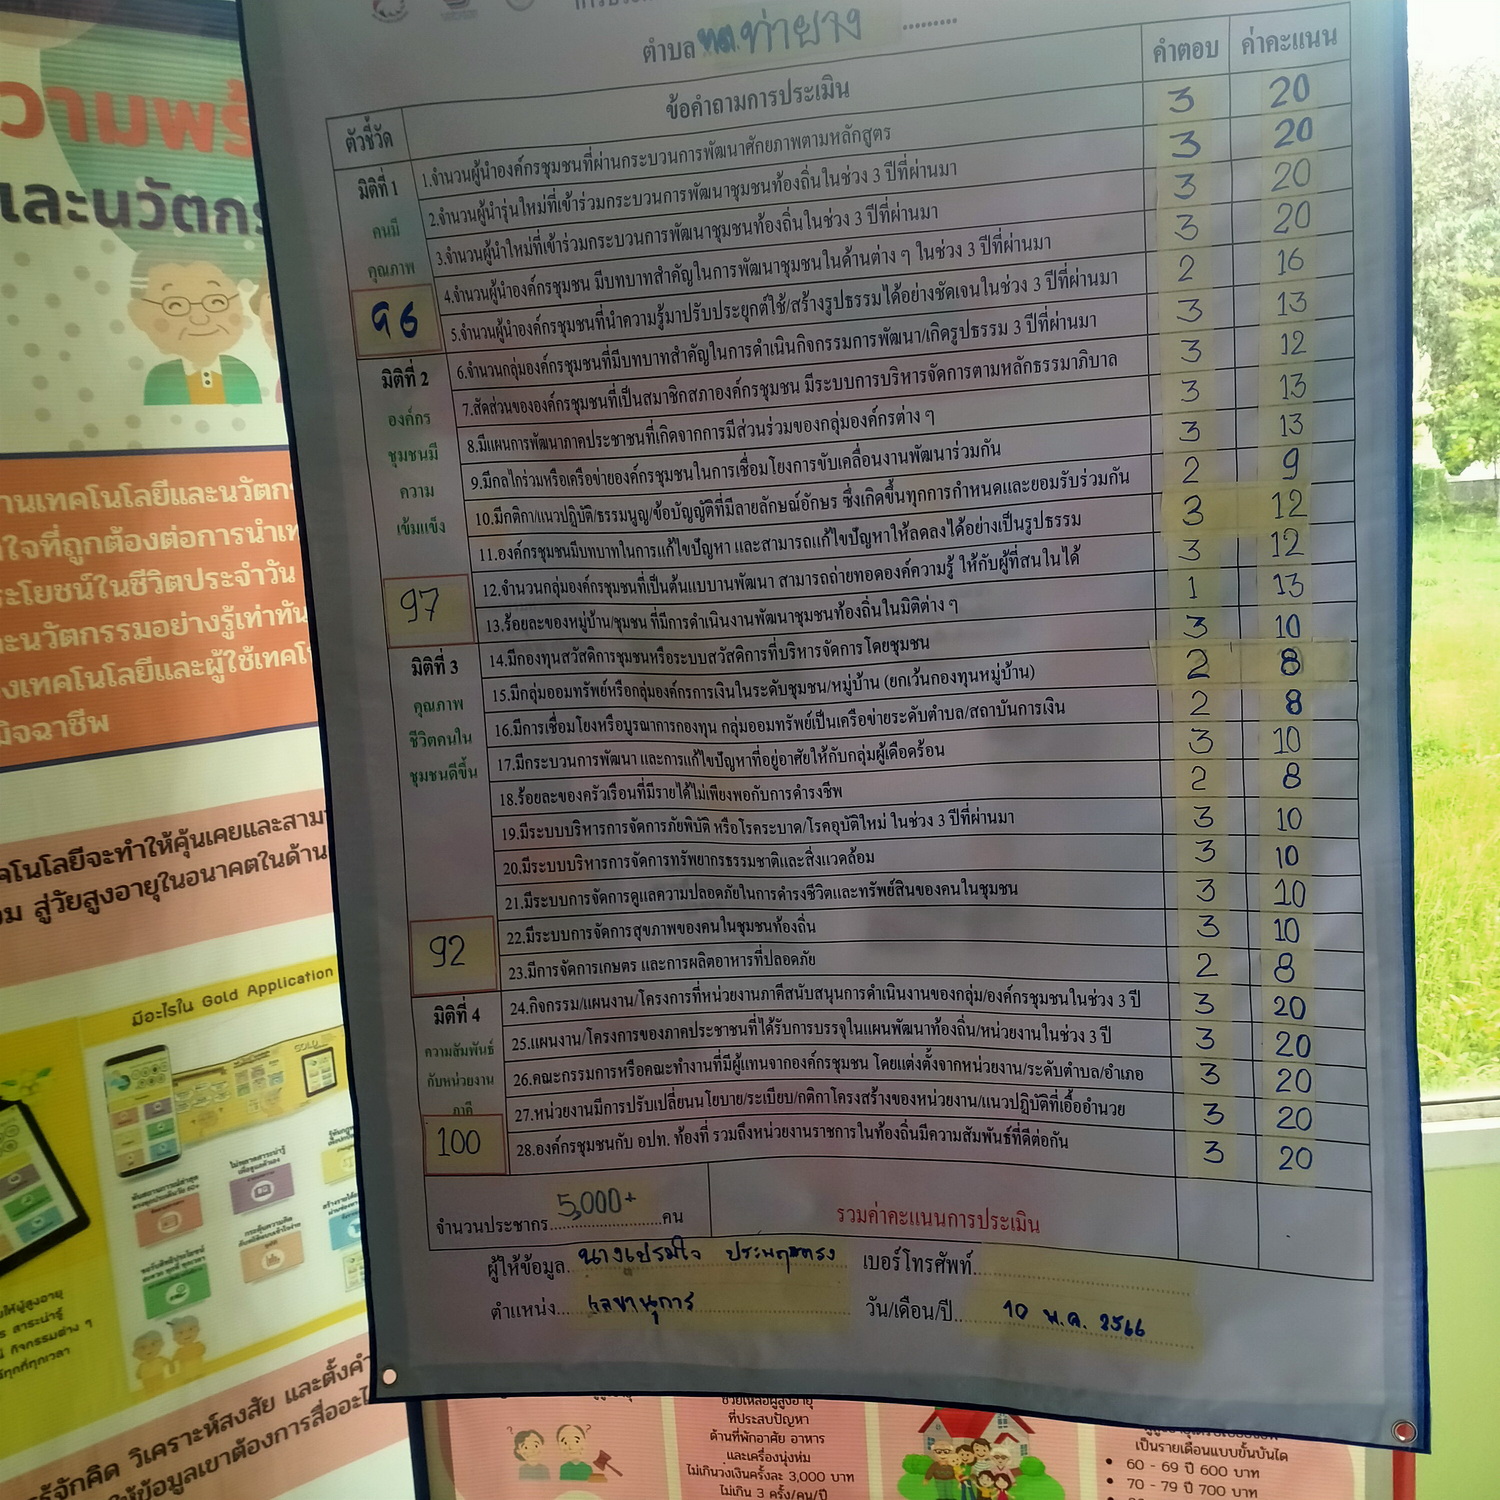 ตำบล ทต.ท่ายาง
ตัวชี้วัด ข้อคำถามการประเมิน คำตอบ ค่าคะแนน
มิติที่ 1
คนมี
คุณภาพ
96
1.จำนวนผู้นำองค์กรชุมชนที่ผ่านกระบวนการพัฒนาศักยภาพตามหลักสูตร 3 20
2.จำนวนผู้นำรุ่นใหม่ที่เข้าร่วมกระบวนการพัฒนาชุมชนท้องถิ่นในช่วง 3 ปีที่ผ่านมา 3 20
3.จำนวนผู้นำใหม่ที่เข้าร่วมกระบวนการพัฒนาชุมชนท้องถิ่นในช่วง 3 ปีที่ผ่านมา 3 20
4.จำนวนผู้นำองค์กรชุมชน มีบทบาทสำคัญในการพัฒนาชุมชนในด้านต่าง ๆ ในช่วง 3 ปีที่ผ่านมา 3 20
5.จำนวนผู้นำองค์กรชุมชนที่นำความรู้มาปรับประยุกต์ใช้/สร้างรูปธรรมได้อย่างชัดเจนในช่วง 3 ปีที่ผ่านมา 2 16
มิติที่ 2
องค์กร
ชุมชนมี
ความ
เข้มแข็ง
97
6.จำนวนกลุ่มองค์กรชุมชนที่มีบทบาทสำคัญในการดำเนินกิจกรรมการพัฒนา/เกิดรูปธรรม 3 ปีที่ผ่านมา 3 13
7.สัดส่วนขององค์กรชุมชนที่เป็นสมาชิกสภาองค์กรชุมชน มีระบบการบริหารจัดการตามหลักธรรมาภิบาล 3 12
8.มีแผนการพัฒนาภาคประชาชนที่เกิดจากการมีส่วนร่วมของกลุ่มองค์กรต่าง ๆ 3 13
9.มีกลไกร่วมหรือเครือข่ายองค์กรชุมชนในการเชื่อมโยงการขับเคลื่อนงานพัฒนาร่วมกัน 3 13
10.มีกติกา/แนวปฏิบัติ/ธรรมนูญ/ข้อบัญญัติที่มีลายลักษณ์อักษร ซึ่งเกิดขึ้นทุกการกำหนดและยอมรับร่วมกัน 2 9
11.องค์กรชุมชนมีบทบาทในการแก้ไขปัญหา และสามารถแก้ไขปัญหาให้ลดลงได้อย่างเป็นรูปธรรม 3 12
12.จำนวนกลุ่มองค์กรชุมชนที่เป็นต้นแบบงานพัฒนา สามารถถ่ายทอดองค์ความรู้ ให้กับผู้ที่สนใจได้ 3 12
13.ร้อยละของหมู่บ้าน/ชุมชน ที่มีการดำเนินงานพัฒนาชุมชนท้องถิ่นในมิติต่าง ๆ 1 13
มิติที่ 3
คุณภาพ
ชีวิตคนใน
ชุมชนดีขึ้น
92
14.มีกองทุนสวัสดิการชุมชนหรือระบบสวัสดิการที่บริหารจัดการโดยชุมชน 3 10
15.มีกลุ่มออมทรัพย์หรือกลุ่มองค์กรการเงินในระดับชุมชน/หมู่บ้าน (ยกเว้นกองทุนหมู่บ้าน) 2 8
16.มีการเชื่อมโยงหรือบูรณาการกองทุน กลุ่มออมทรัพย์เป็นเครือข่ายระดับตำบล/สถาบันการเงิน 2 8
17.มีกระบวนการพัฒนา และการแก้ไขปัญหาที่อยู่อาศัยให้กับกลุ่มผู้เดือดร้อน 3 10
18.ร้อยละของครัวเรือนที่มีรายได้ไม่เพียงพอกับการดำรงชีพ 2 8
19.มีระบบบริหารการจัดการภัยพิบัติ หรือโรคระบาด/โรคอุบัติใหม่ ในช่วง 3 ปีที่ผ่านมา 3 10
20.มีระบบบริหารการจัดการทรัพยากรธรรมชาติและสิ่งแวดล้อม 3 10
21.มีระบบการจัดการดูแลความปลอดภัยในการดำรงชีวิตและทรัพย์สินของคนในชุมชน 3 10
22.มีระบบการจัดการสุขภาพของคนในชุมชนท้องถิ่น 3 10
23.มีการจัดการเกษตร และการผลิตอาหารที่ปลอดภัย 2 8
มิติที่ 4
ความสัมพันธ์
กับหน่วยงาน
ภาคี
100
24.กิจกรรม/แผนงาน/โครงการที่หน่วยงานภาคีสนับสนุนการดำเนินงานของกลุ่ม/องค์กรชุมชนในช่วง 3 ปี 3 20
25.แผนงาน/โครงการของภาคประชาชนที่ได้รับการบรรจุในแผนพัฒนาท้องถิ่น/หน่วยงานในช่วง 3 ปี 3 20
26.คณะกรรมการหรือคณะทำงานที่มีผู้แทนจากองค์กรชุมชน โดยแต่งตั้งจากหน่วยงาน/ระดับตำบล/อำเภอ 3 20
27.หน่วยงานมีการปรับเปลี่ยนนโยบาย/ระเบียบ/กติกาโครงสร้างของหน่วยงาน/แนวปฏิบัติที่เอื้ออำนวย 3 20
28.องค์กรชุมชนกับ อปท. ท้องที่ รวมถึงหน่วยงานราชการในท้องถิ่นมีความสัมพันธ์ที่ดีต่อกัน 3 20
จำนวนประชากร 5,000+ คน รวมค่าคะแนนการประเมิน
ผู้ให้ข้อมูล นางเปรมใจ ประพฤติตรง เบอร์โทรศัพท์
ตำแหน่ง เลขานุการ วัน/เดือน/ปี 10 พ.ค. 2566
วามพร้
และนวัตกร
านเทคโนโลยีและนวัตก
ใจที่ถูกต้องต่อการนำเท
ระโยชน์ในชีวิตประจำวัน
ละนวัตกรรมอย่างรู้เท่าทัน
งเทคโนโลยีและผู้ใช้เทคโ
มิจฉาชีพ
คโนโลยีจะทำให้คุ้นเคยและสาม
สู่วัยสูงอายุในอนาคตในด้าน
มีอะไรใน Gold Application
ให้ผู้สูงอายุ
สาระน่ารู้
กิจกรรมต่าง ๆ
ทุกที่ทุกเวลา
รู้จักคิด วิเคราะห์สงสัย และตั้งคำ
ให้ข้อมูลเขาต้องการสื่ออะไ
ช่วยเหลือผู้สูงอายุ
ที่ประสบปัญหา
ด้านที่พักอาศัย อาหาร
และเครื่องนุ่งห่ม
ไม่เกินวงเงินครั้งละ 3,000 บาท
ไม่เกิน 3 ครั้ง/คน/ปี
เป็นรายเดือนแบบขั้นบันได
• 60 - 69 ปี 600 บาท
• 70 - 79 ปี 700 บาท